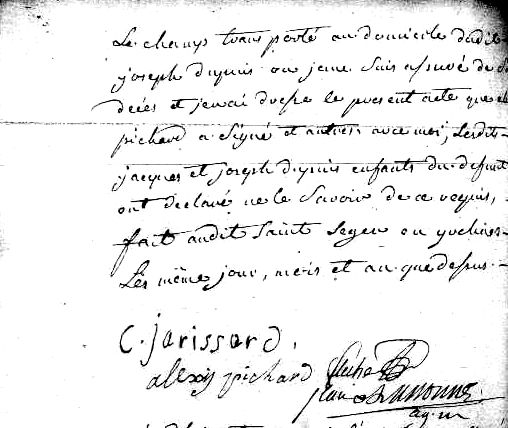 Le champ transporté au domicile dudit
joseph dupuis ou jeme suis assuré de So
decés et jenai dressé le present acte que al
pichard a Signé et autres avec moi, Lesdits
jacques et joseph dupuis enfants du defunt
ont declaré ne le Savoir de ce requis, -
fait audit Saint Segen en yvelines -
Les même jour, mois et an que dessus. -
C. jarissard.
alexis pichard
jean
agm